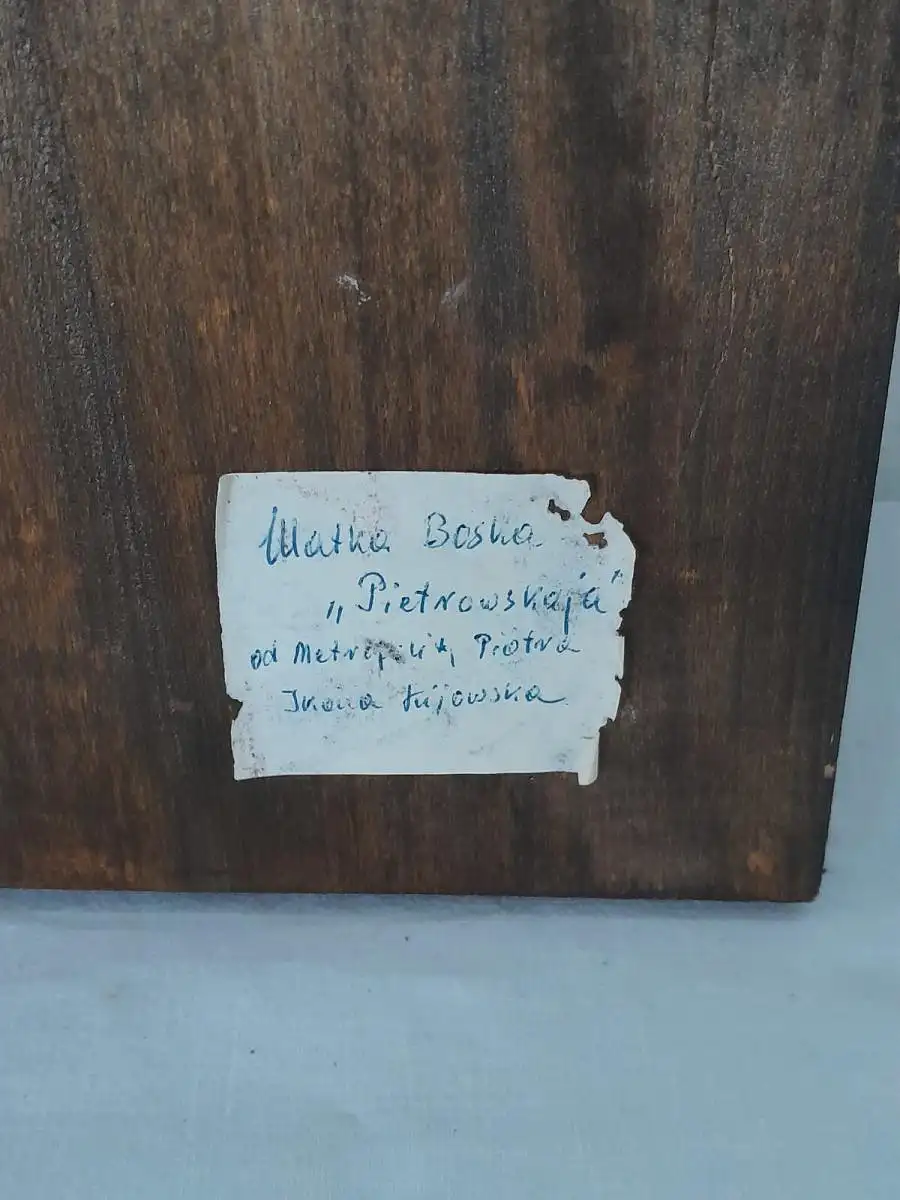 Matka Boska
„Pietrowskaja"
od Metropolity Piotra
Ikona Kijowska